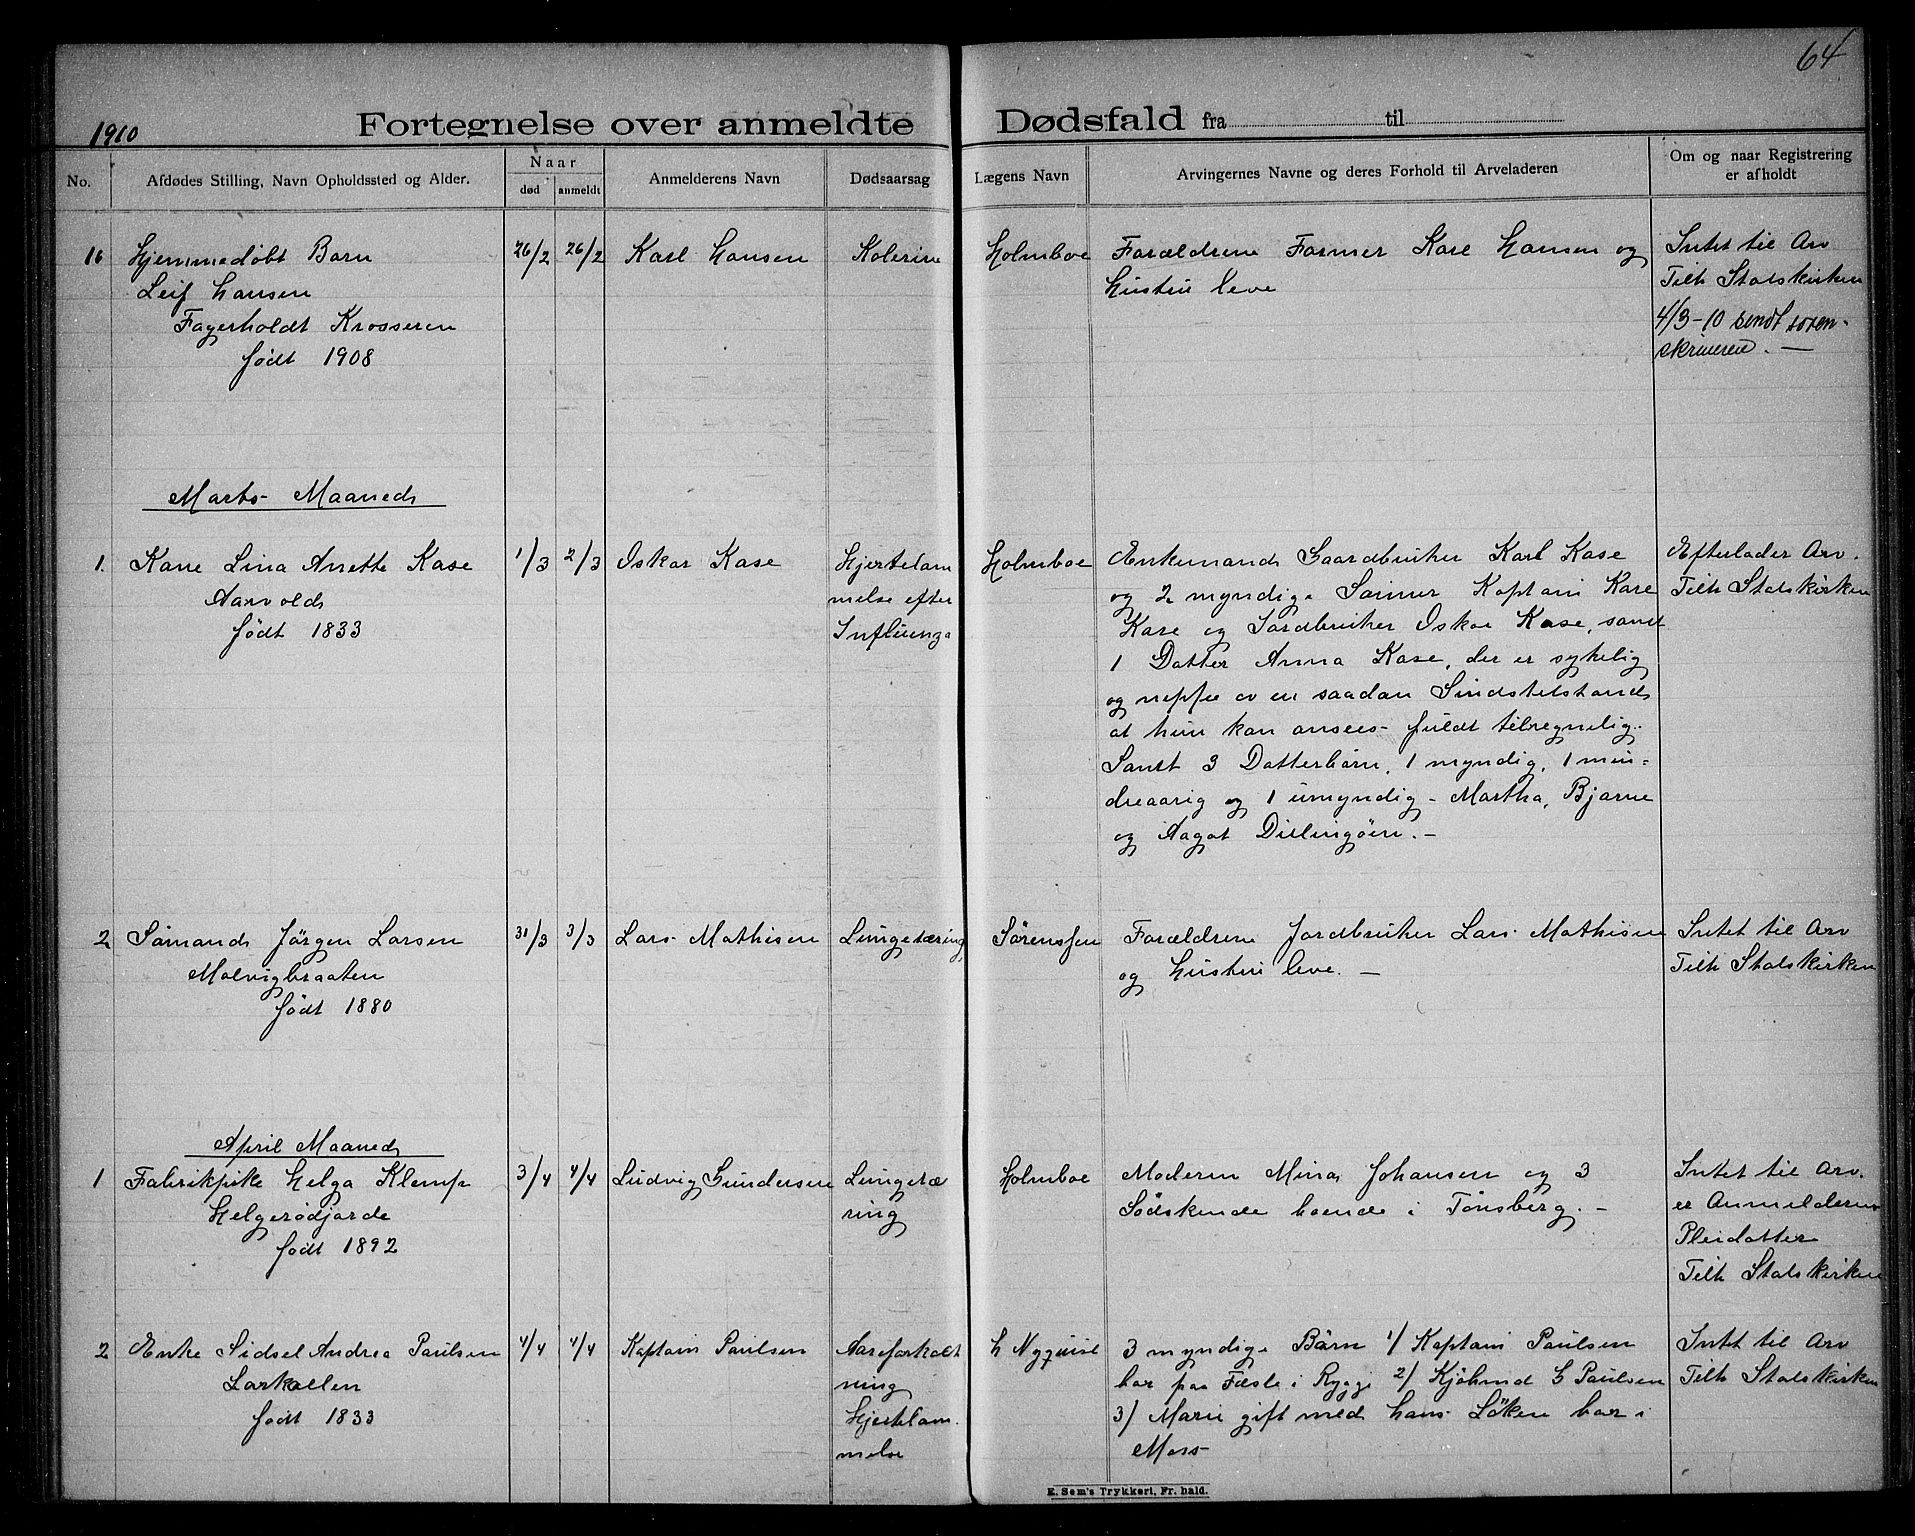 64
1910
Fortegnelse over anmeldte Dødsfald fra til
No.
Afdødes Stilling, Navn Opholdssted og Alder.
Naar
død
anmeldt
Anmelderens Navn
Dødsaarsag
Lægens Navn
Arvingernes Navne og deres Forhold til Arveladeren
Om og naar Registrering
er afholdt
16 Hjemmedøbt Barn 26/2 26/2 Karl Hansen Kolerine Holmboe Forældrene Farmer Karl Hansen og Intet til Arv
Leif Hansen Hustru leve Tilh Statskirken
Fagerholdt Krosseren 4/3-10 sendt soren-
født 1908 skriveren. —
Marts Maaned
1. Kone Lina Anette Kase 1/3 2/3 Oskar Kase Hjertelam Holmboe Enkemand Gaardbruker Karl Kase Efterlader Arv.
Aarvold melse efter og 2 myndige Sønner Kaptain Kare Tilh Statskirken
født 1833 Influenza Kase og Jordbruker Oskar Kase, samt
1 Datter Anna Kase, der er sykelig
og neppe av en saadan Sindstilstand
at hun kan ansees fuldt tilregnelig.
Samt 3 Datterbørn, 1 myndig, 1 min-
dreaarig og 1 umyndig - Martha, Bjarne
og Aagot Dillingøen. —
2 Sømand Jørgen Larsen 31/3 3/3 Lars Mathisen Lungetæring Sørenssen Forældrene Jordbruker Lars Mathisen Intet til Arv
Molvigbraaten og Hustru leve. — Tilh Statskirken
født 1880
April Maaned
1 Fabrikpike Helga Klemp 3/4 4/4 Ludvig Gundersen Lungetæ Holmboe Moderen Mina Johansen og 3 Intet til Arv.
Helgerødjorde ring Södskende boende i Tönsberg. — er Anmelderens
født 1892 Pleidatter
Tilh Statskirken
2 Enke Sidsel Andrea Paulsen 4/4 4/4 Kaptain Paulsen Aareforkalk H Nyquist 3 myndige Børn 1/ Kaptain Paulsen Intet til Arv
Larkollen ning bor paa Fæste i Rygge 2/ Kjøbmd G Paulsen Tilh Statskirken
født 1833 Hjertelam 3/ Marie gift med Hans Løken bor i
melse Moss
E. Sem's Trykkeri, Fr. hald.